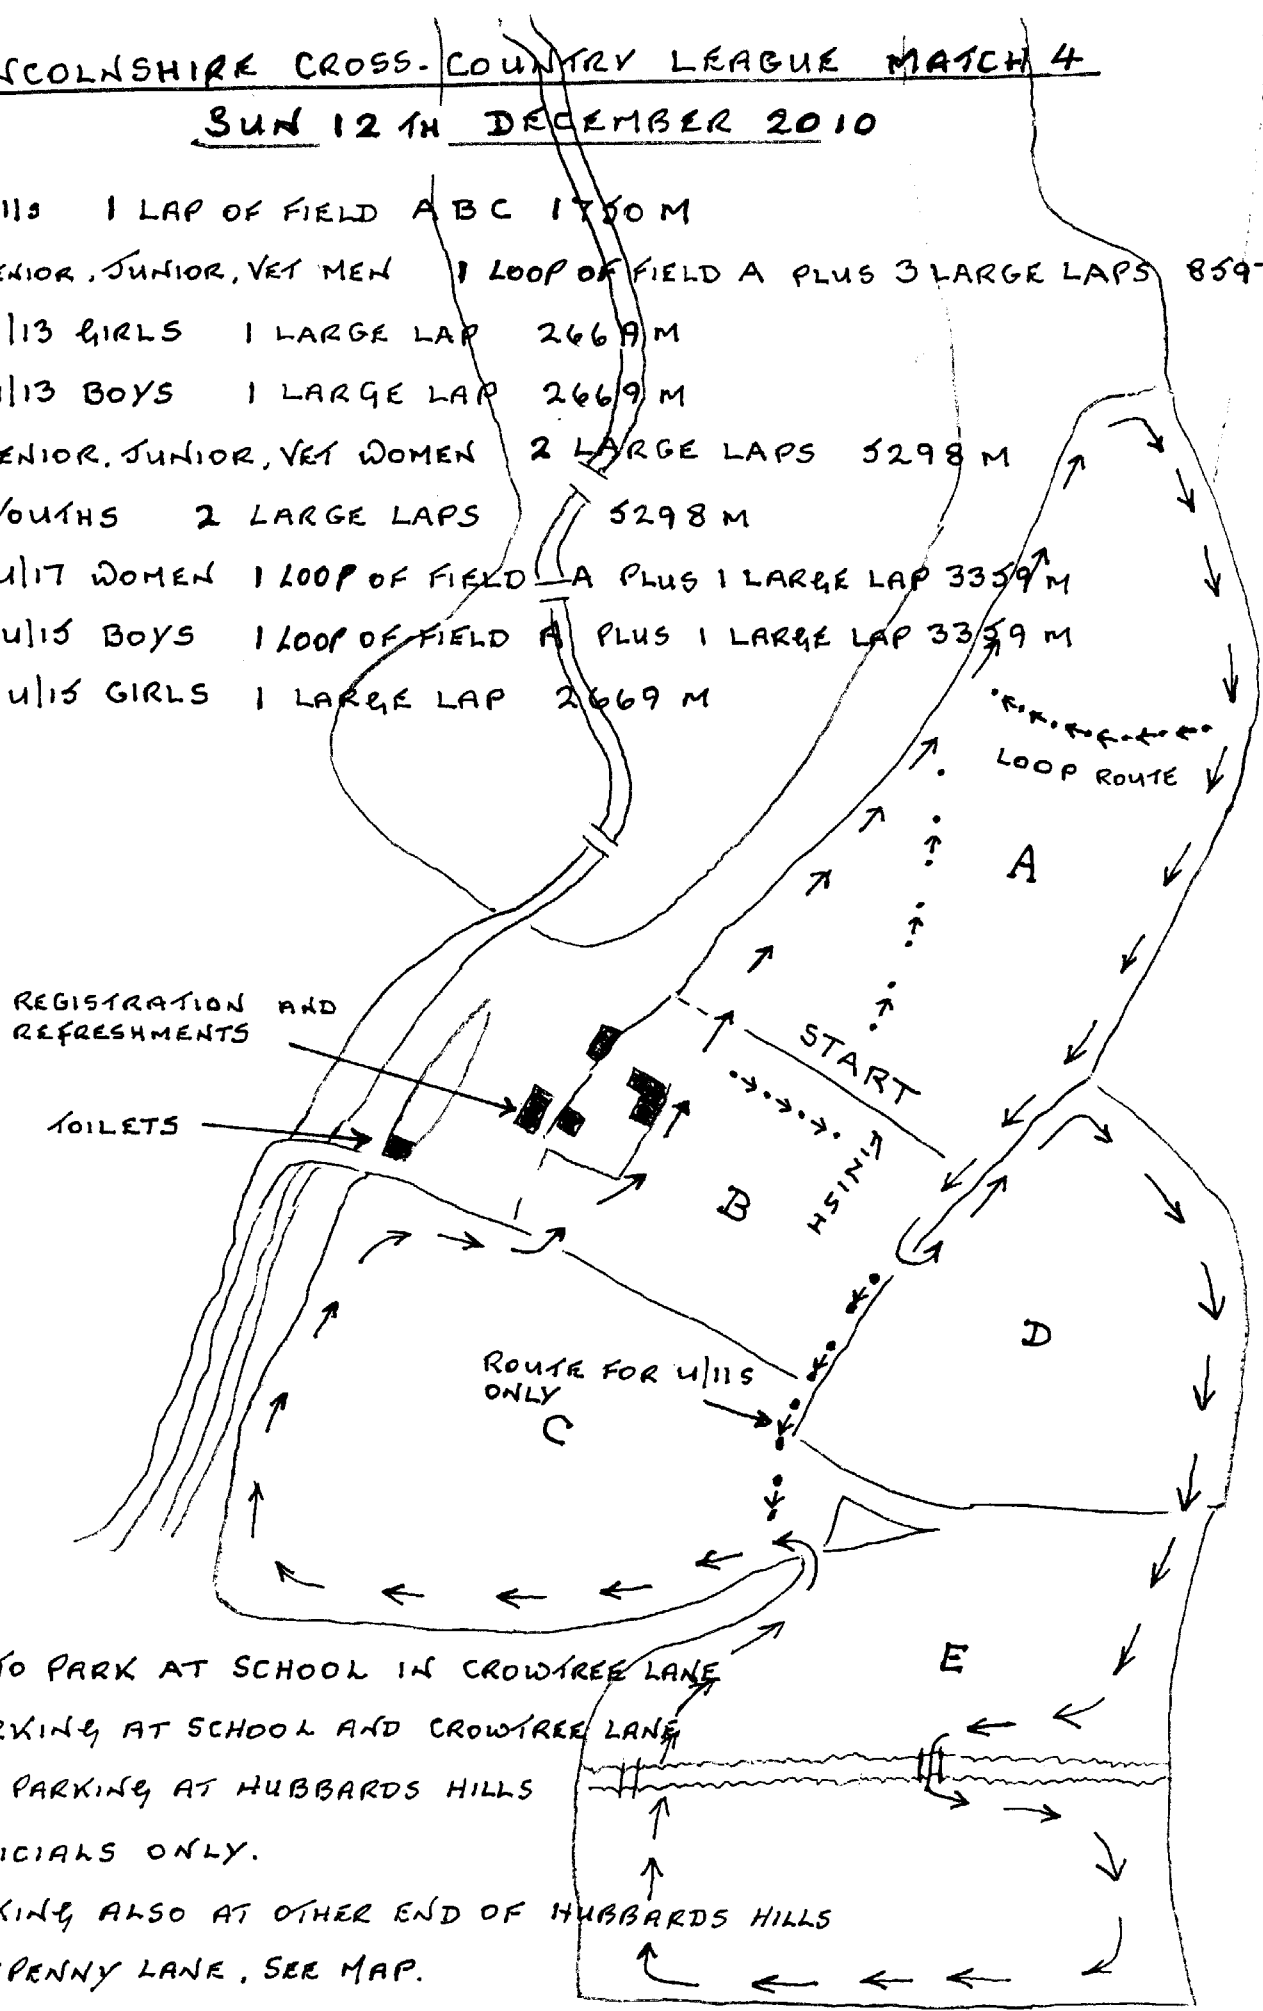 NCOLNSHIRE CROSS-COUNTRY LEAGUE MATCH 4
SUN 12TH DECEMBER 2010
11s 1 LAP OF FIELD A B C 1750 M
ENIOR, JUNIOR, VET MEN 1 LOOP OF FIELD A PLUS 3 LARGE LAPS 859
/13 GIRLS 1 LARGE LAP 2669 M
/13 BOYS 1 LARGE LAP 2669 M
ENIOR, JUNIOR, VET WOMEN 2 LARGE LAPS 5298 M
YOUTHS 2 LARGE LAPS 5298 M
U/17 WOMEN 1 LOOP OF FIELD A PLUS 1 LARGE LAP 3359 M
U/15 BOYS 1 LOOP OF FIELD A PLUS 1 LARGE LAP 3359 M
U/15 GIRLS 1 LARGE LAP 2669 M
LOOP ROUTE
A
REGISTRATION AND
REFRESHMENTS
START
TOILETS
B
FINISH
D
ROUTE FOR U/11S
ONLY
C
E
TO PARK AT SCHOOL IN CROWTREE LANE
RKING AT SCHOOL AND CROWTREE LANE
PARKING AT HUBBARDS HILLS
ICIALS ONLY.
KING ALSO AT OTHER END OF HUBBARDS HILLS
PENNY LANE, SEE MAP.